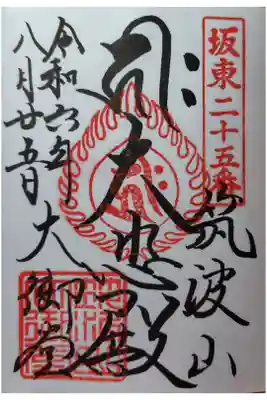 坂東二十五番
筑波山
大悲殿
大御堂
令和六年
八月廿五日